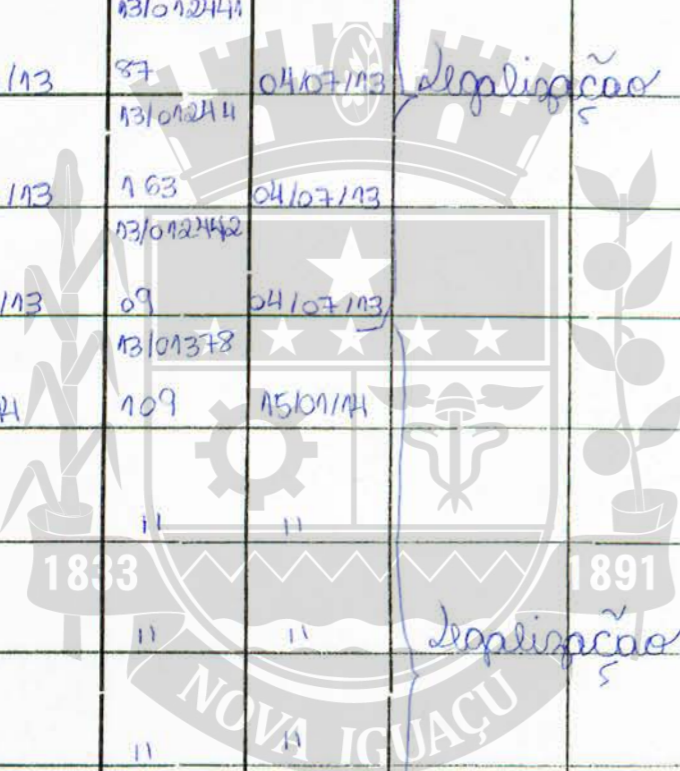 13/012441
/13 87 04/07/13 Legalização
13/01244
/13 163 04/07/13
13/012442
/13 09 04/07/13
13/01378
14 109 15/01/14
" "
1833 1891
" " Legalização
NOVA IGUAÇU
" "